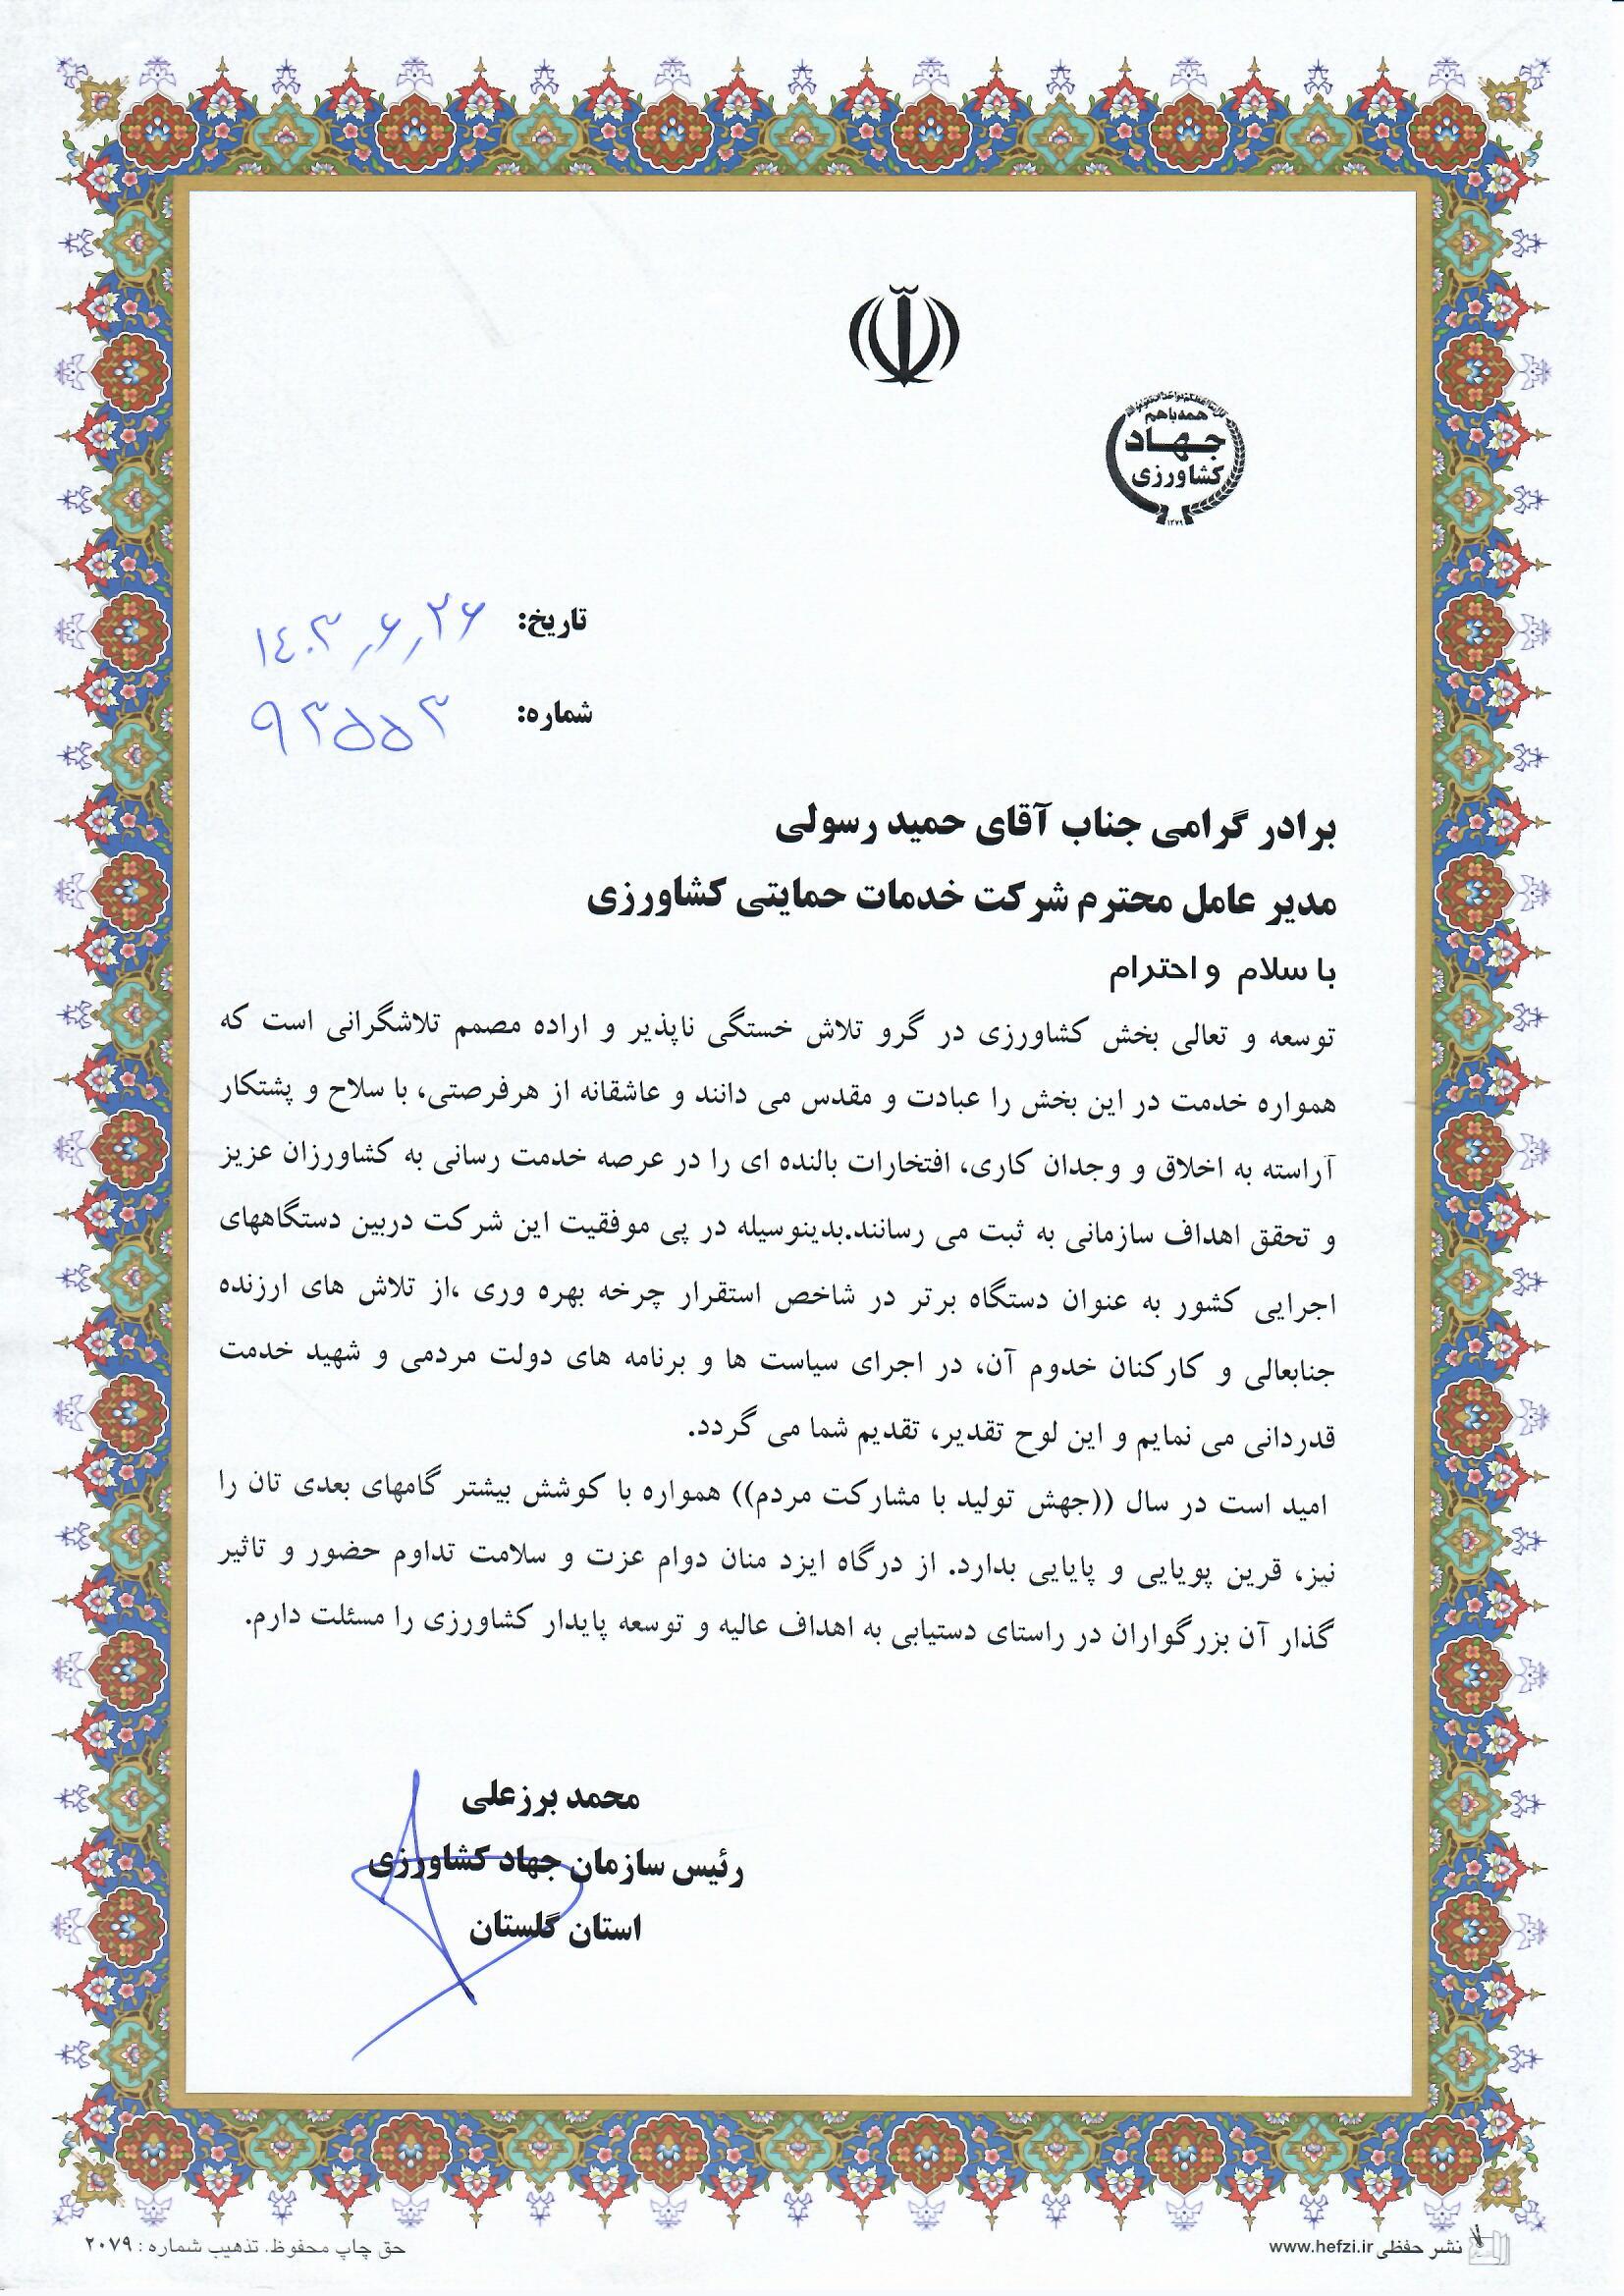 همه با هم
جهاد
کشاورزی
۱۳۷۹
تاریخ: ۱۴۰۳,۶,۲۶
شماره: ۹۳۵۵۳
برادر گرامی جناب آقای حمید رسولی
مدیر عامل محترم شرکت خدمات حمایتی کشاورزی
با سلام و احترام
توسعه و تعالی بخش کشاورزی در گرو تلاش خستگی ناپذیر و اراده مصمم تلاشگرانی است که
همواره خدمت در این بخش را عبادت و مقدس می دانند و عاشقانه از هرفرصتی، با سلاح و پشتکار
آراسته به اخلاق و وجدان کاری، افتخارات بالنده ای را در عرصه خدمت رسانی به کشاورزان عزیز
و تحقق اهداف سازمانی به ثبت می رسانند.بدینوسیله در پی موفقیت این شرکت دربین دستگاههای
اجرایی کشور به عنوان دستگاه برتر در شاخص استقرار چرخه بهره وری ،از تلاش های ارزنده
جنابعالی و کارکنان خدوم آن، در اجرای سیاست ها و برنامه های دولت مردمی و شهید خدمت
قدردانی می نمایم و این لوح تقدیر، تقدیم شما می گردد.
امید است در سال ((جهش تولید با مشارکت مردم)) همواره با کوشش بیشتر گامهای بعدی تان را
نیز، قرین پویایی و پایایی بدارد. از درگاه ایزد منان دوام عزت و سلامت تداوم حضور و تاثیر
گذار آن بزرگواران در راستای دستیابی به اهداف عالیه و توسعه پایدار کشاورزی را مسئلت دارم.
محمد برزعلی
رئیس سازمان جهاد کشاورزی
استان گلستان
نشر حفظی www.hefzi.ir
حق چاپ محفوظ. تذهیب شماره : ۲۰۷۹